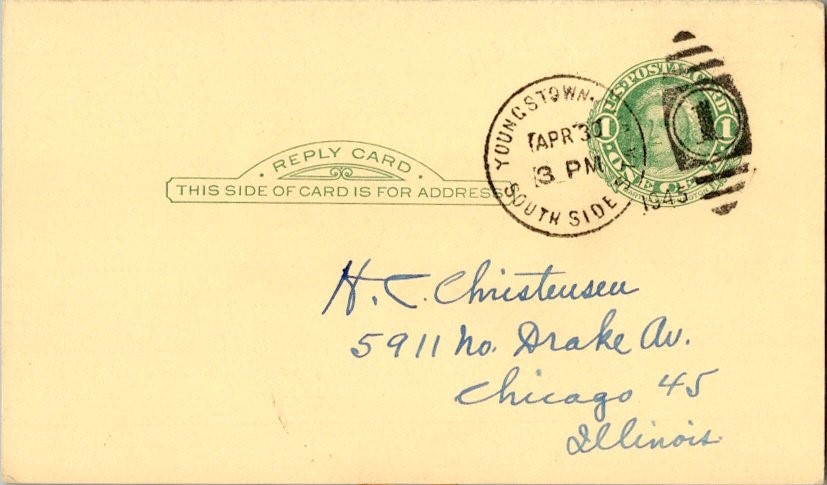 REPLY CARD
THIS SIDE OF CARD IS FOR ADDRESS
YOUNGSTOWN.
APR 30
3 PM
SOUTH SIDE
U.S. POSTAL CARD
1 1
1
H. C. Christensen
5911 No. Drake Av.
Chicago 45
Illinois